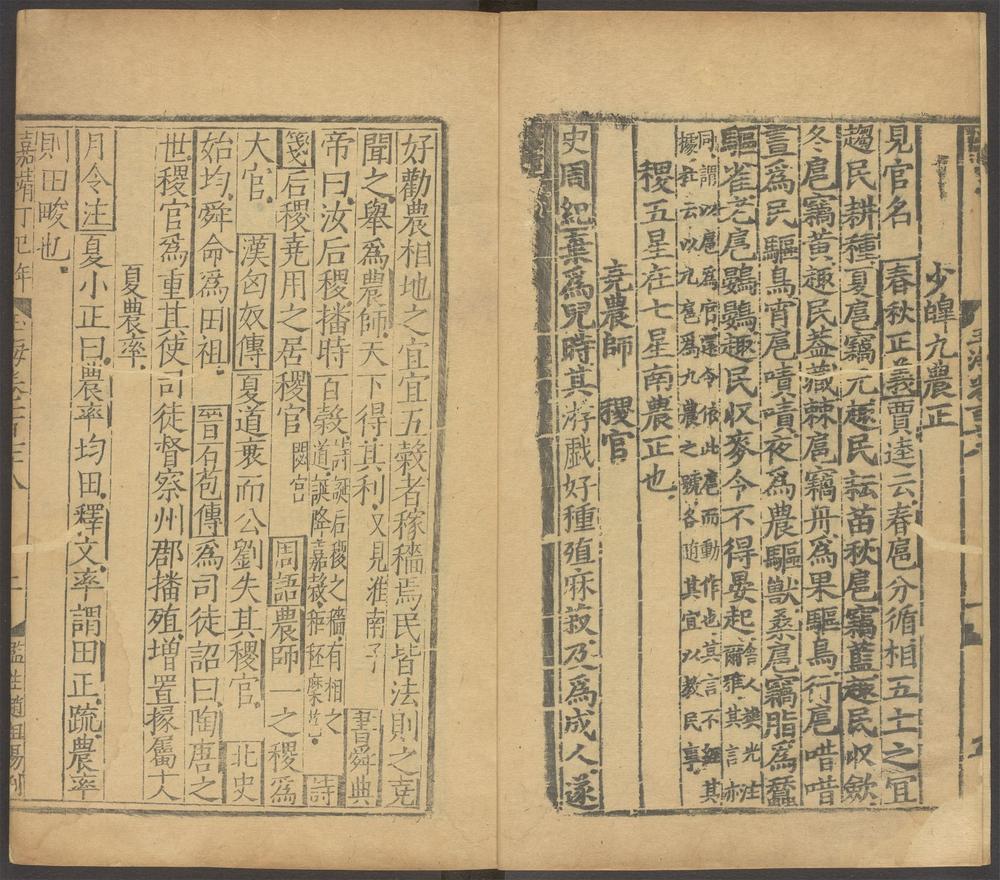 少皥九農正
見官名 春秋正義賈逵云春扈分循相五土之宜
趨民耕種夏扈竊玄趣民耘苗秋扈竊藍趣民收斂
冬扈竊黃趣民蓋藏棘扈竊丹爲果驅鳥行扈唶唶
晝爲民驅鳥宵扈嘖嘖夜爲農驅獸桑扈竊脂爲蠶
驅雀老扈鷃鷃趣民收麥令不得晏起舍人樊光注
爾雅其言亦
同謂以扈爲官還令依此扈而動作也其言不經其
據杜云以九扈爲九農之號各隨其宜以教民事
稷五星在七星南農正也
堯農師 稷官
史周紀棄爲兒時其游戲好種殖麻菽及爲成人遂
好勸農相地之宜宜五穀者稼穡焉民皆法則之堯
聞之舉爲農師天下得其利又見淮南子 書舜典
帝曰汝后稷播時百穀詩誕后稷之穡有相之
道誕降嘉穀秬秠穈芑 詩
箋后稷堯用之居稷官閟宮 周語農師一之稷爲
大官 漢匈奴傳夏道衰而公劉失其稷官 北史
始均舜命爲田祖 晉石苞傳爲司徒詔曰陶唐之
世稷官爲重其使司徒督察州郡播殖增置掾屬十
夏農率
月令注夏小正曰農率均田釋文率謂田正疏農率
則田畯也
嘉靖丁巳年
監生趙祖